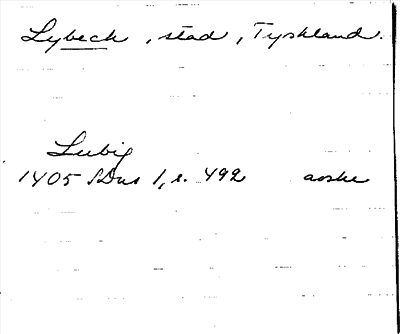 Lybeck, stad, Tyskland.
Lubig
1405 SDns 1, s. 492 avskr